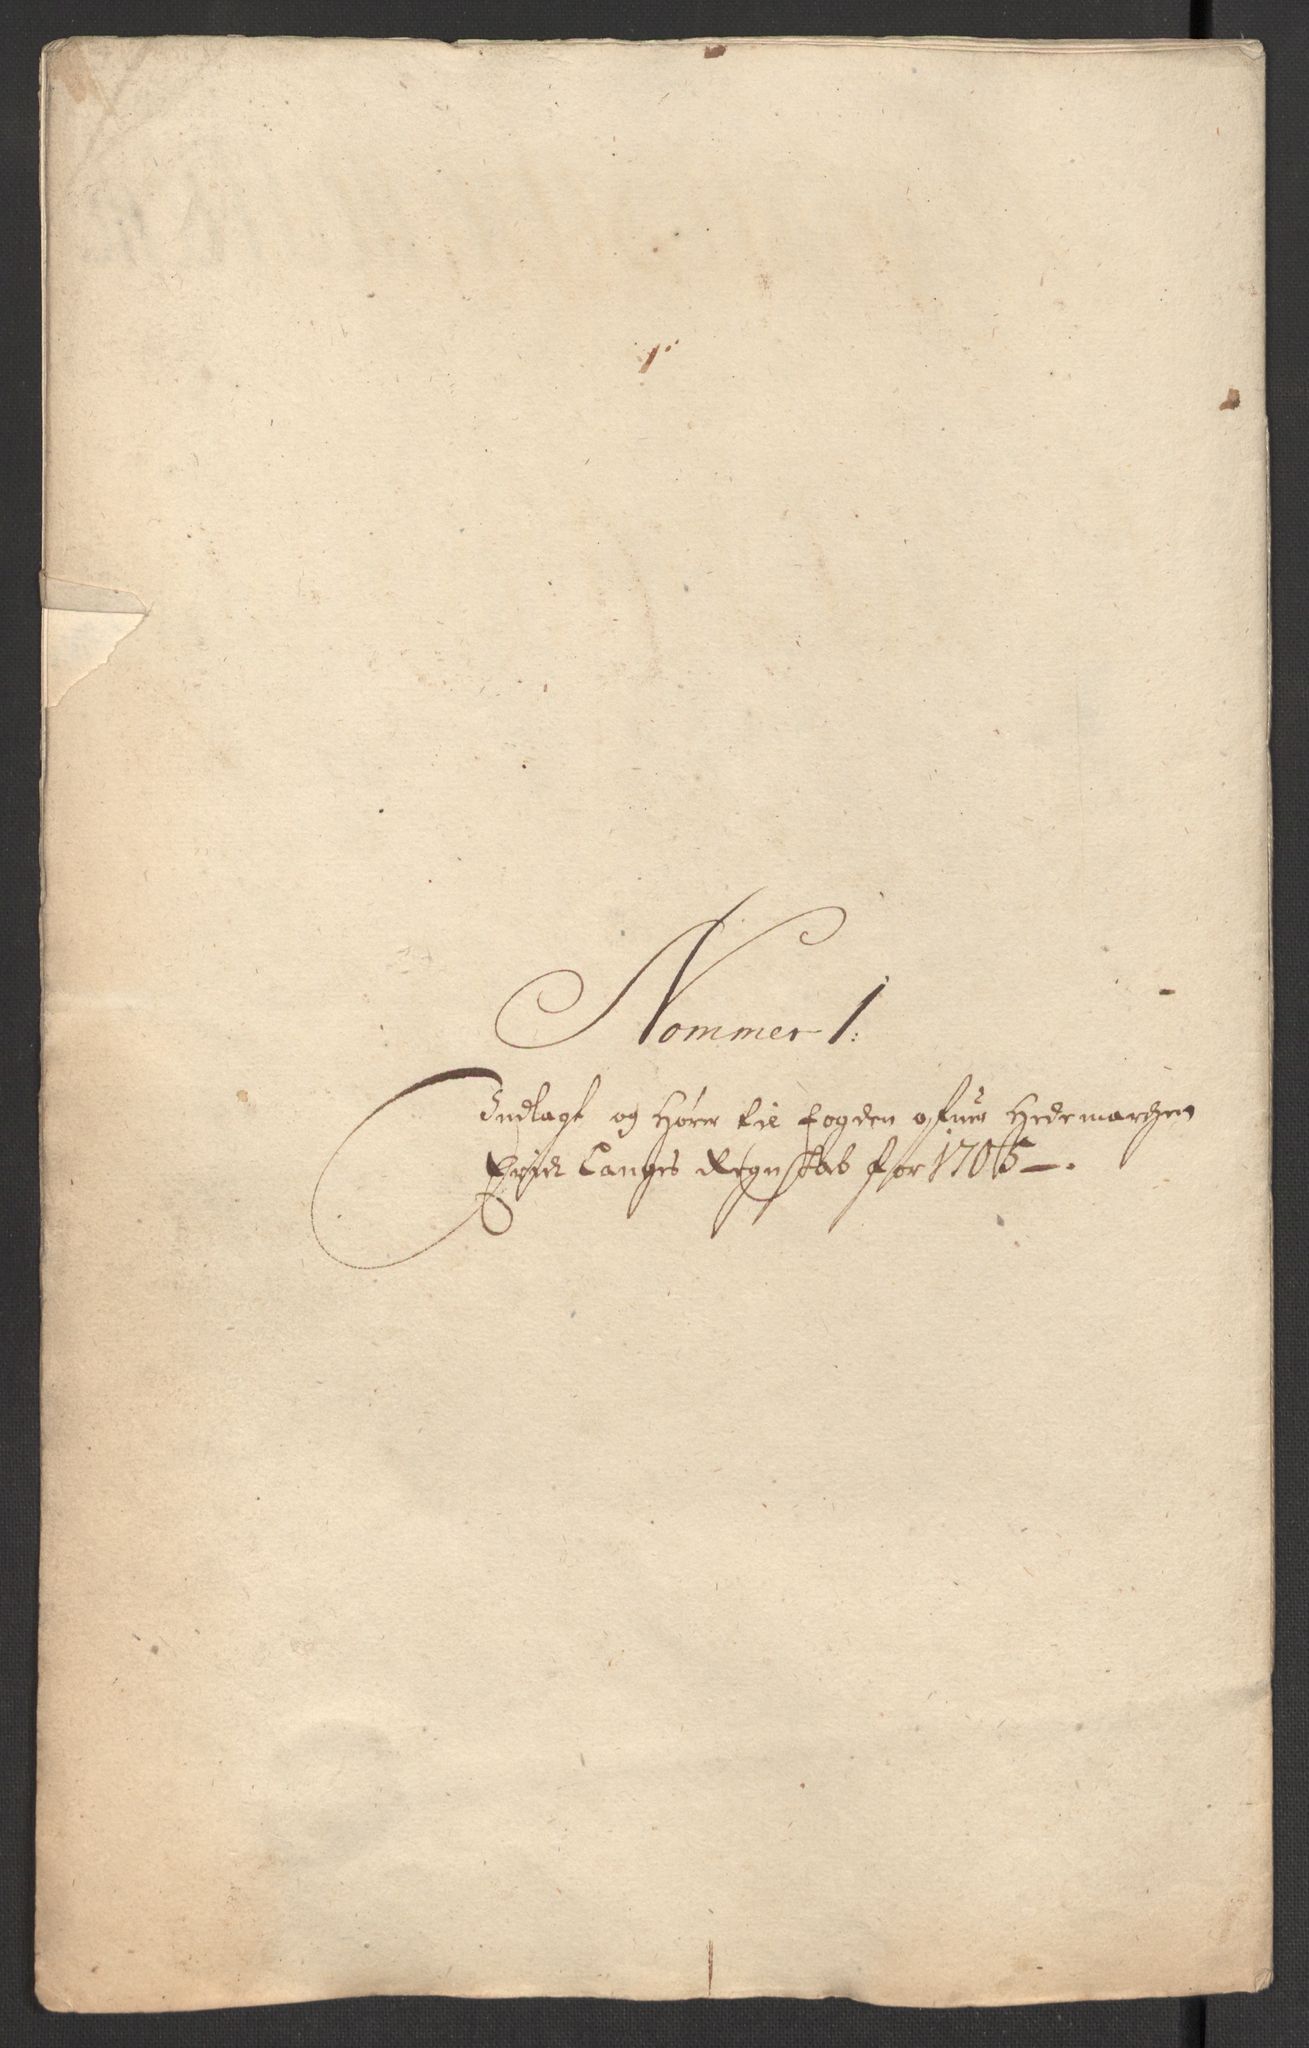 Nommer 1:
Indlagt og hører til fogden ofuer Hedemarchen
Erich Langes Regnskab for 1705 –.